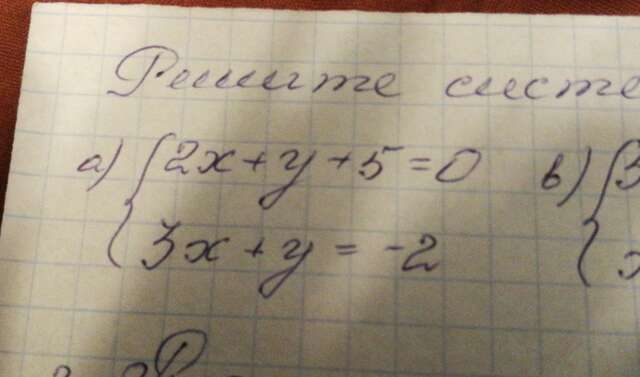 Решите систе
а) { 2x + y + 5 = 0 в) { 3
3x + y = -2 x